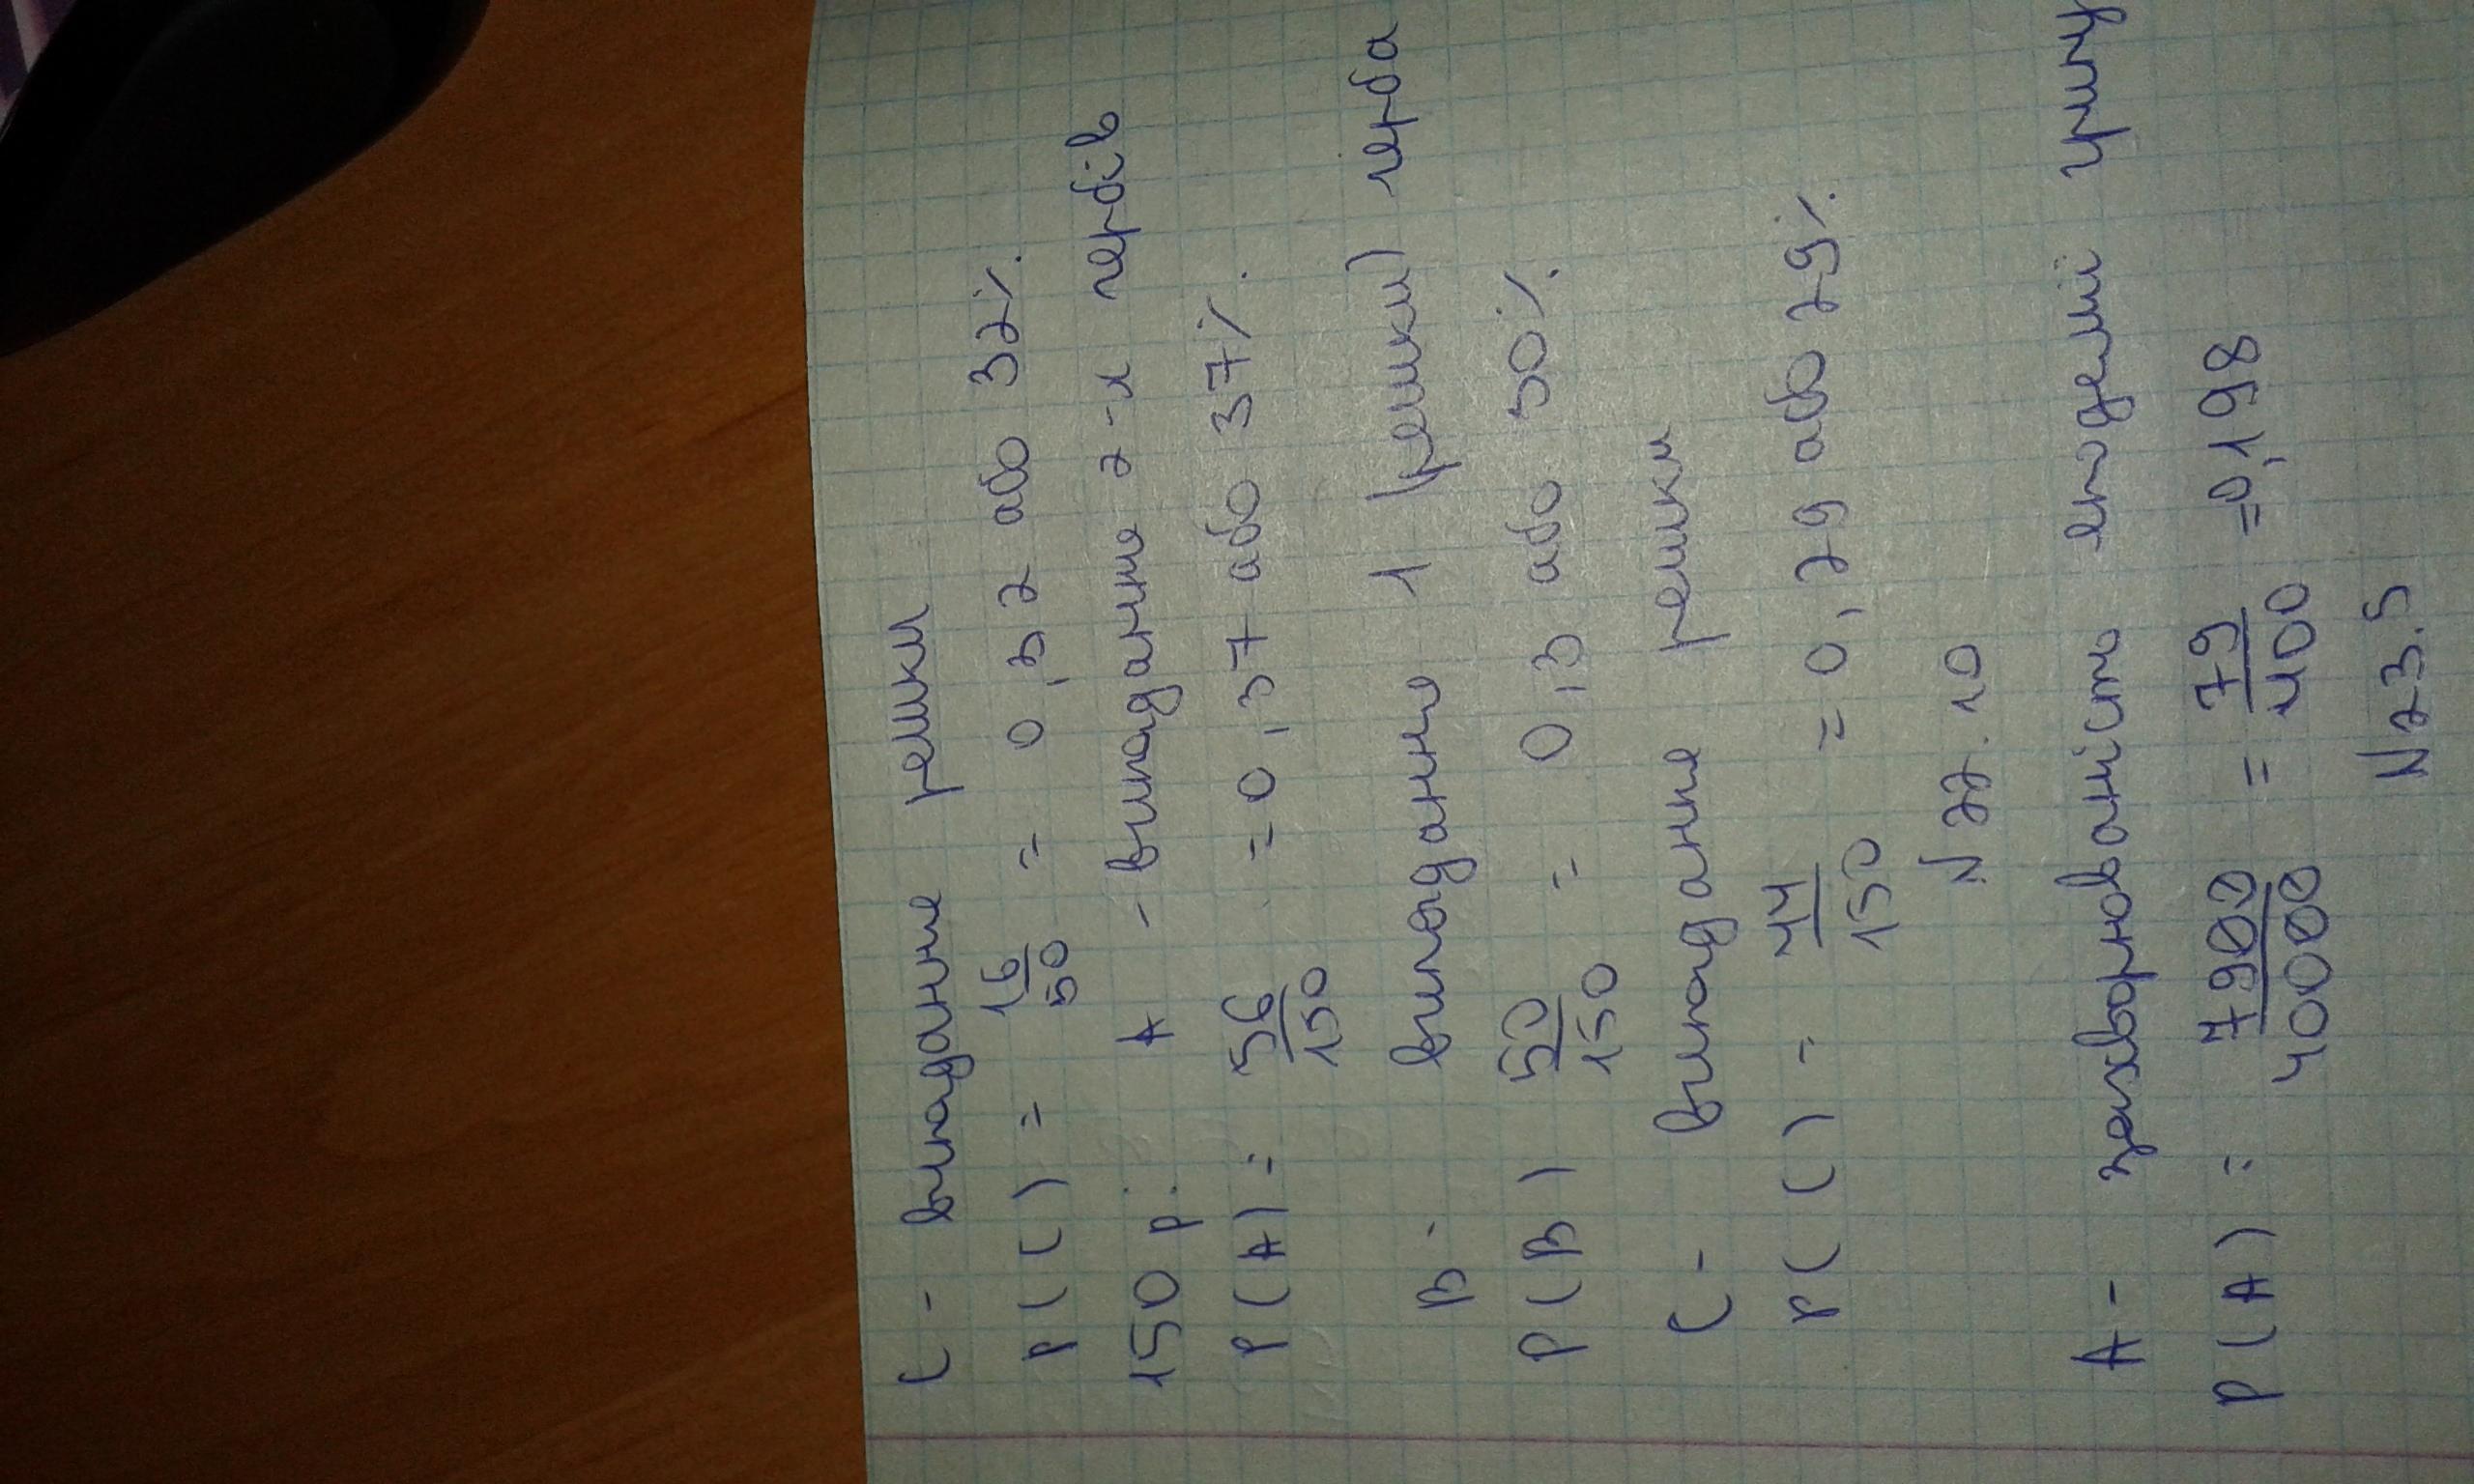 С - випадання решки
P(C) = 16/50 = 0,32 або 32%.
150 р. : А - випадание 2-х гербів
P(A) = 56/150 = 0,37 або 37%.
В - випадание 1 решки) герба
P(B) 50/150 = 0,3 або 50%.
С - випадание решки
P(C) = 44/150 = 0,29 або 29%.
N 22.10
А - захворюваність епідемії грипу
P(A) = 7900/40000 = 79/400 = 0,198
N 23.5